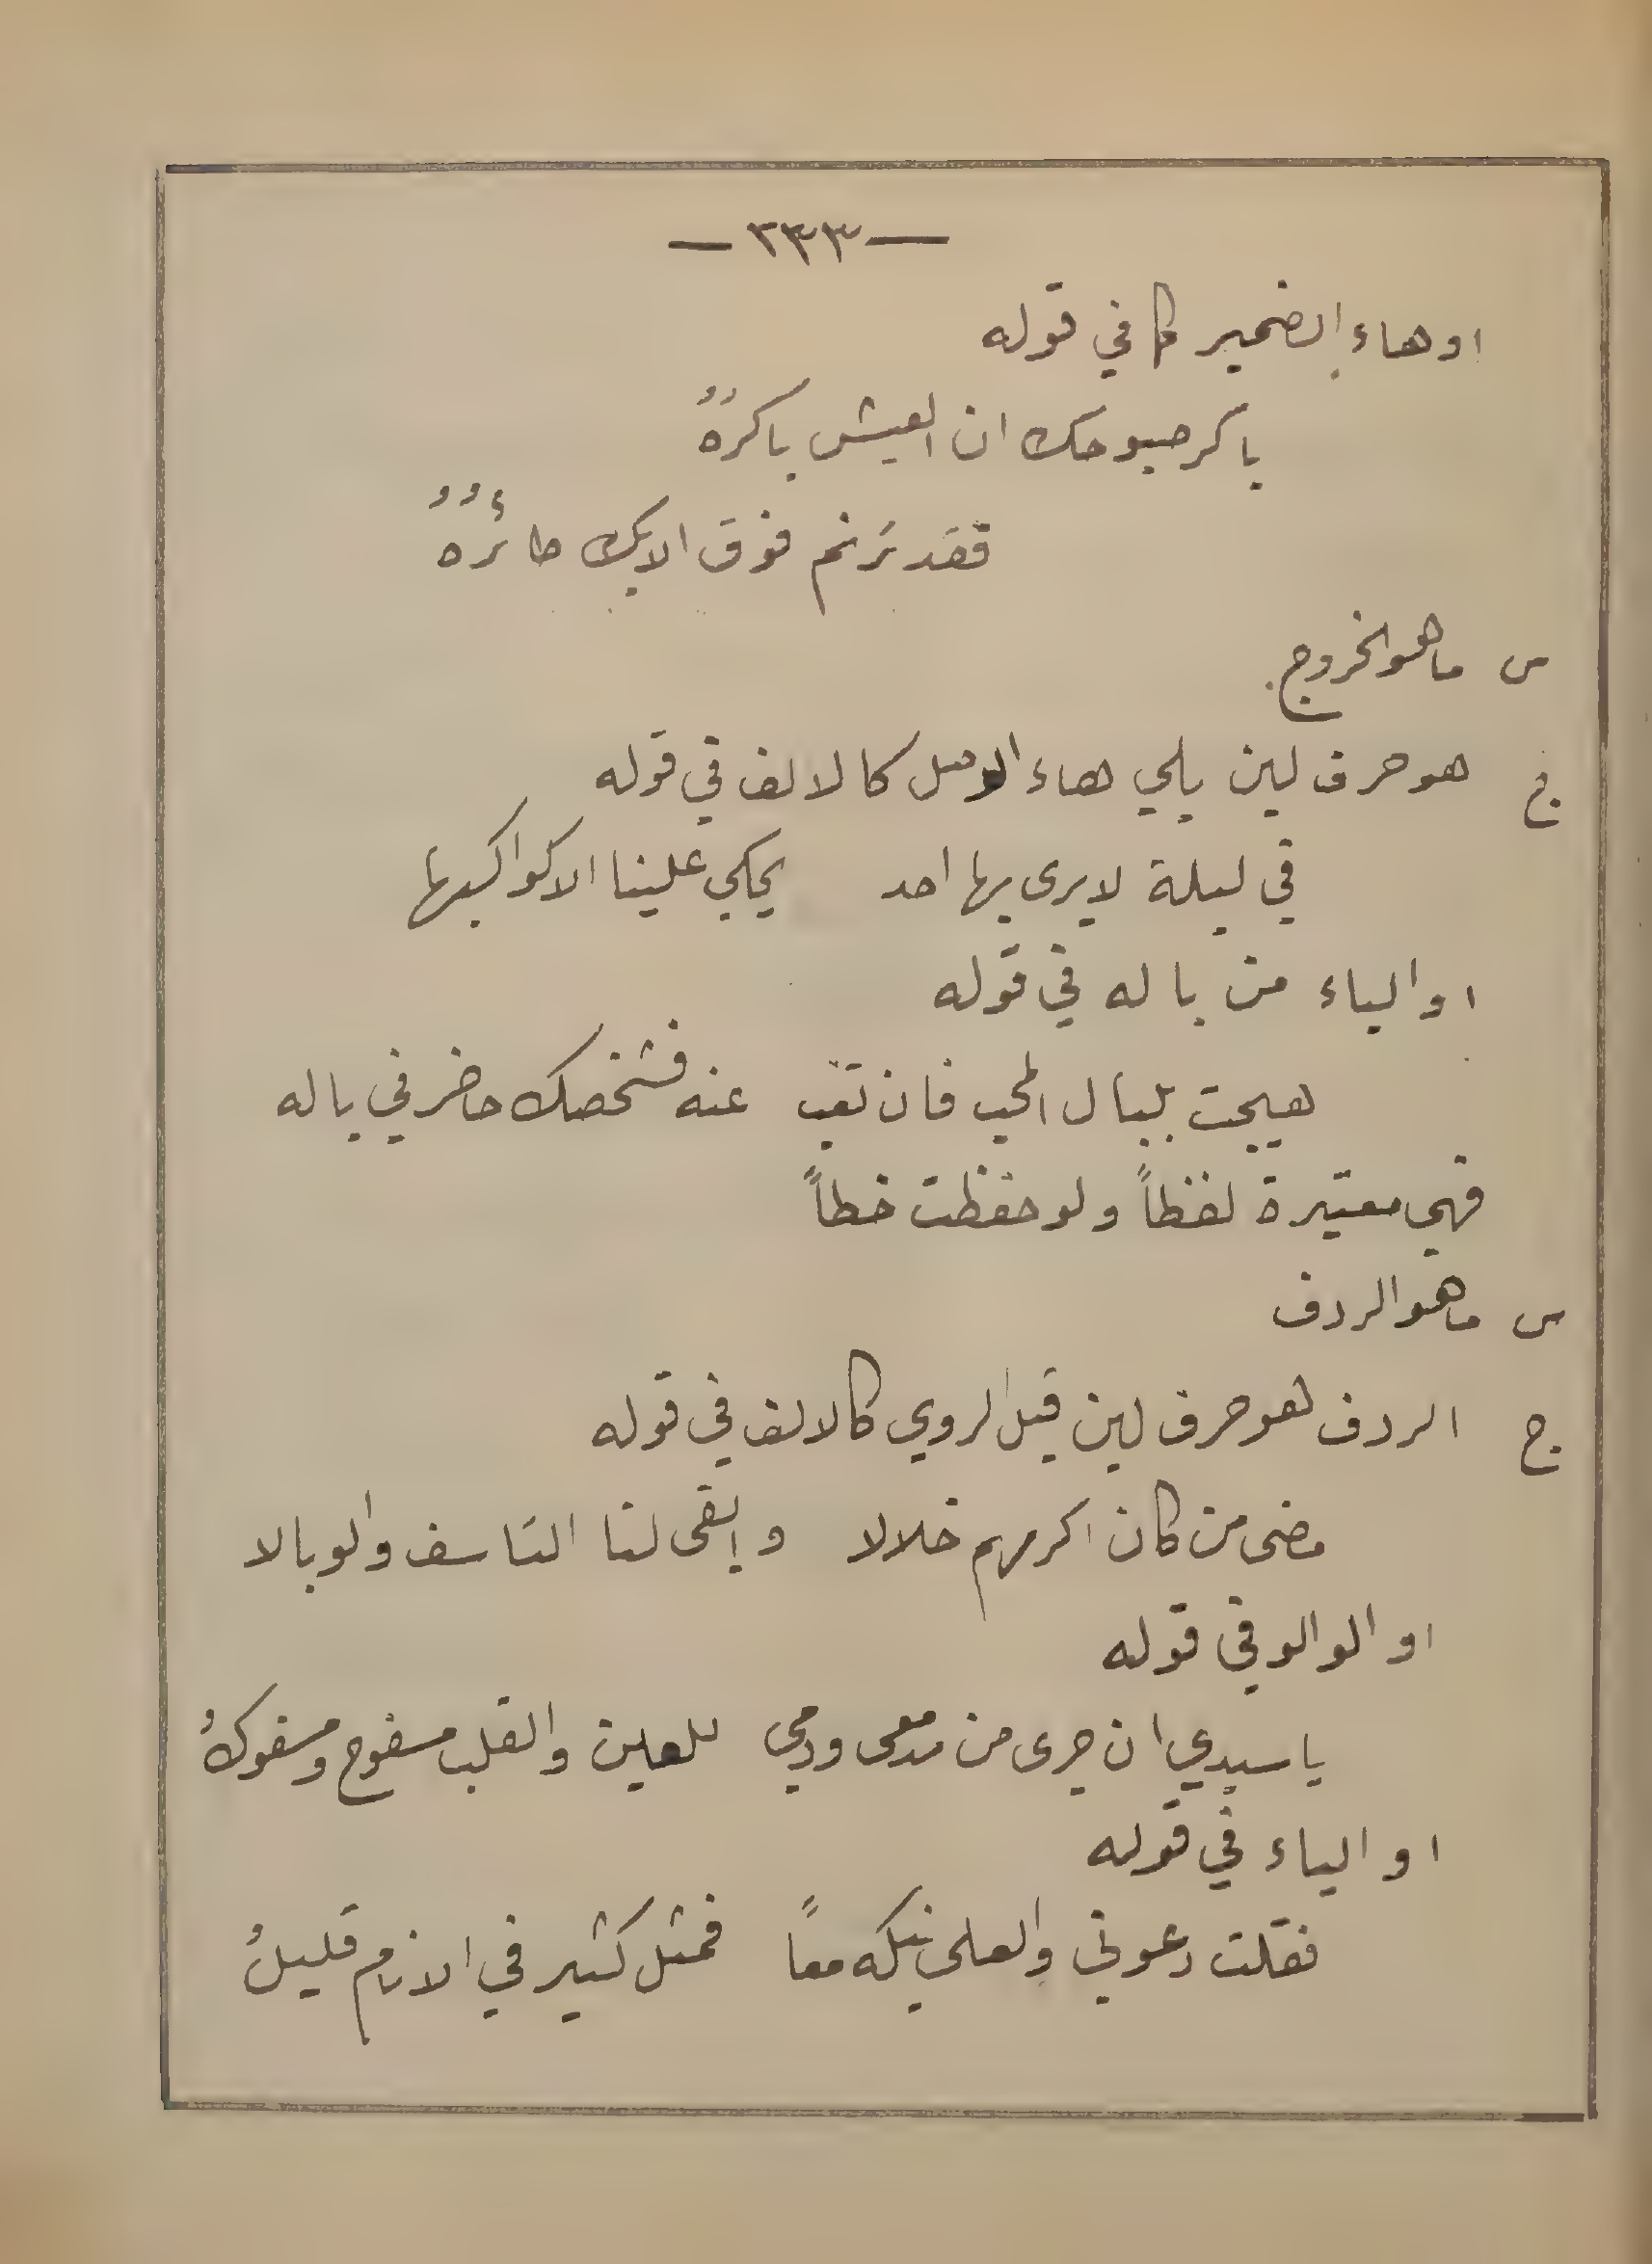 — ٢٣٣ —
او هاء الضمير كما في قوله
باكر صبوحك ان العيش باكرهُ
فقد ترنم فوق الايك طائرُهُ
س ما هو الخروج
ج هو حرف لين يلي هاء الوصل كالالف في قوله
في ليلة لا يرى بها احد يحكي علينا الا كواكبها
او الياء من باله في قوله
هيجت بلبال المحب فان تغب عنه فشخصك حاضر في باله
فهي معتبرة لفظاً ولو حفظت خطاً
س ما هو الردف
ج الردف هو حرف لين قبل الروي كالالف في قوله
مضى من كان اكرمهم خلالا وابقى لنا التاسف والوبالا
او الواو في قوله
يا سيدي ان جرى من مدمعى ودمي للعين والقلب مسفوح ومسفوكُ
او الياء في قوله
فقلت دعوني والعلى نبكه معاً فمثل كثير في الانام قليلُ